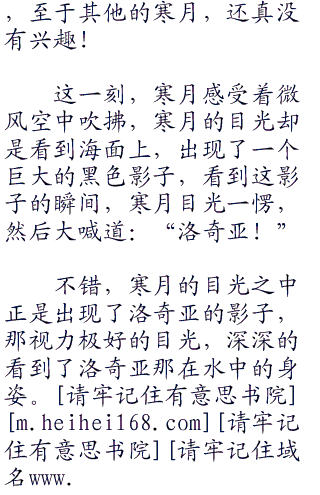 ，至于其他的寒月，还真没
有兴趣！
这一刻，寒月感受着微
风空中吹拂，寒月的目光却
是看到海面上，出现了一个
巨大的黑色影子，看到这影
子的瞬间，寒月目光一愣，
然后大喊道：“洛奇亚！”
不错，寒月的目光之中
正是出现了洛奇亚的影子，
那视力极好的目光，深深的
看到了洛奇亚那在水中的身
姿。[请牢记住有意思书院]
[m.heihei168.com][请牢记
住有意思书院][请牢记住域
名www.